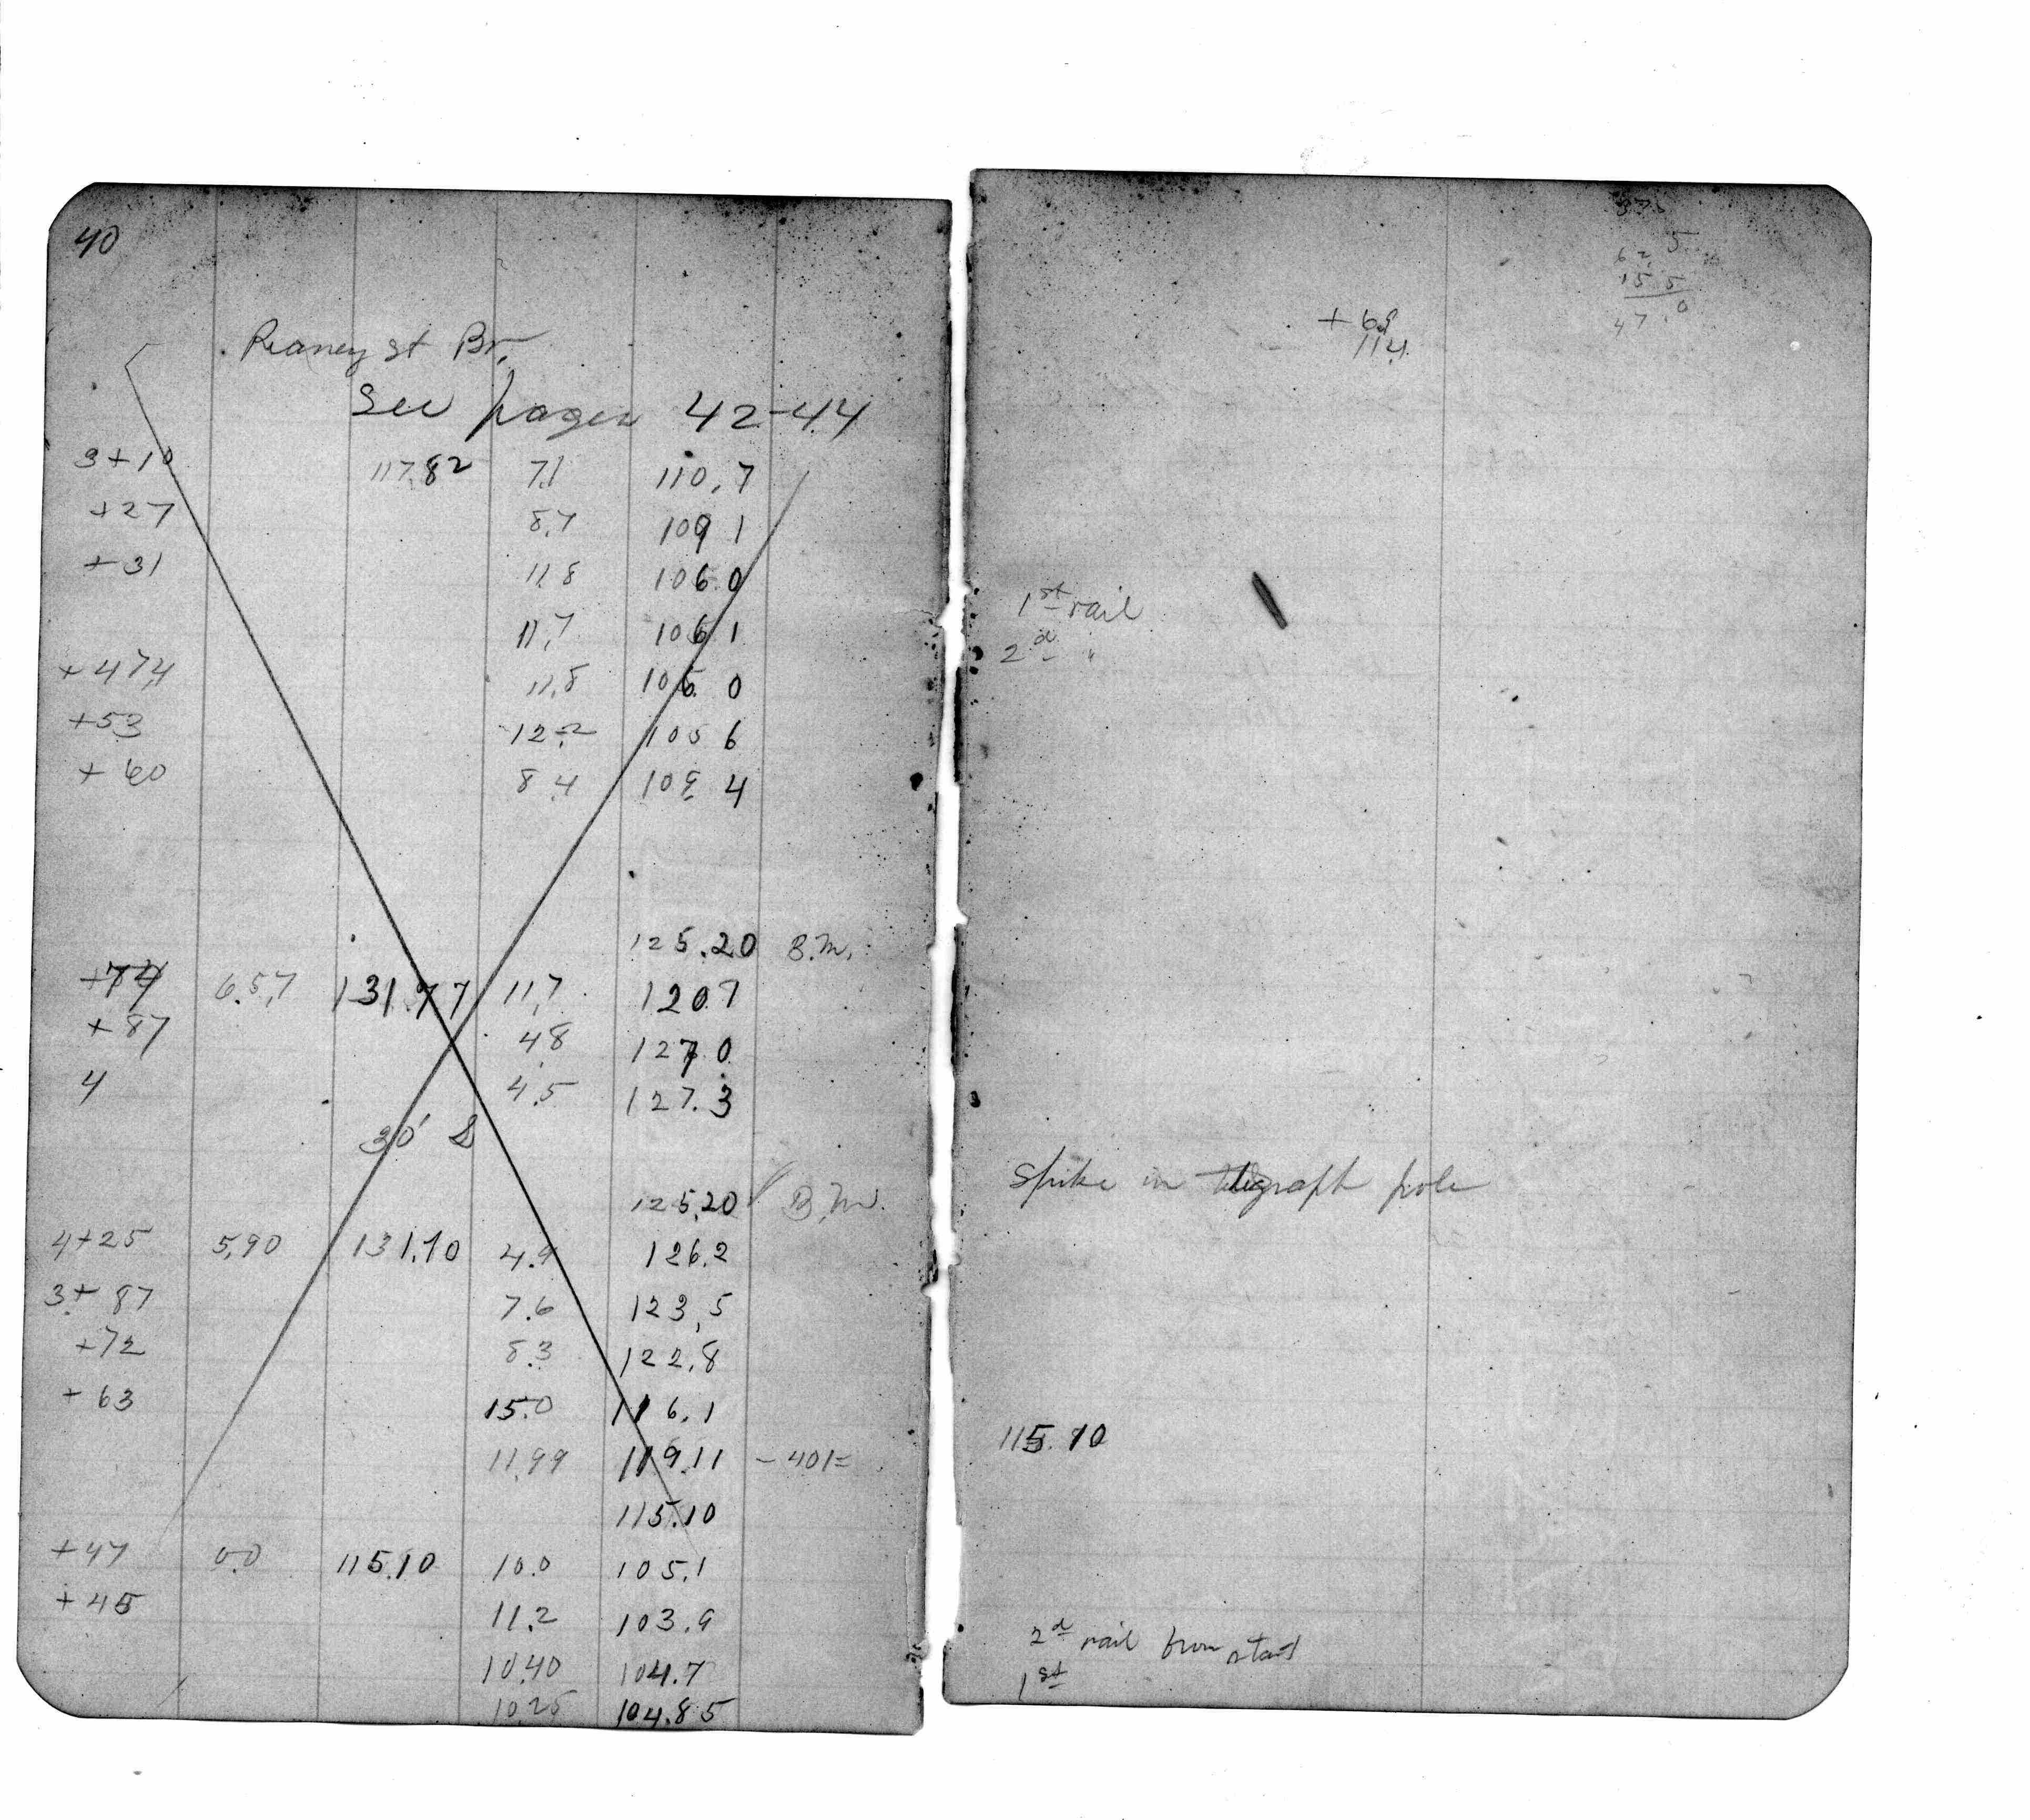 40
Reaney st Br.
See pages 42-44
3+10 117.82 7.1 110.7
+27 8.7 109.1
+31 11.8 106.0
11.7 106.1
+47.4 11.8 106.0
+53 12.2 105.6
+60 8.4 109.4
125.20 B.M.
+74 6.57 131.77 11.7 120.7
+87 4.8 127.0
4 4.5 127.3
30' S
125.20 B.M.
4+25 5.90 131.10 4.9 126.2
3+87 7.6 123.5
+72 8.3 122.8
+63 15.0 116.1
11.99 119.11 - 401=
115.10
+47 0.0 115.10 10.0 105.1
+45 11.2 103.9
10.40 104.7
10.25 104.85
37.5
62.5
15 5
47.0
+68
114
1st rail
2d "
Spike in telegraph pole
115.10
2d rail from start
1st